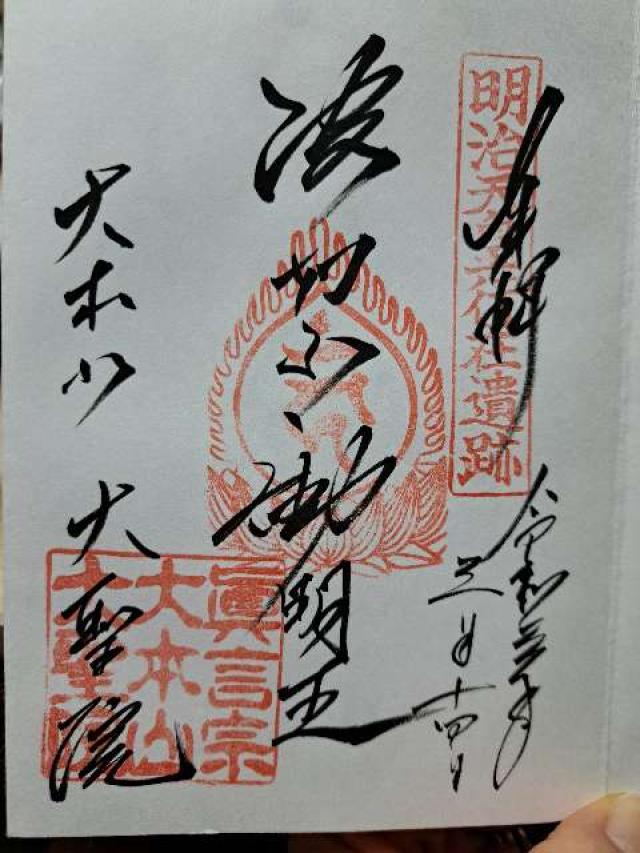 奉拝
明治天皇行在社遺跡
令和三年
三月十四日
波切不動明王
大本山 大聖院
眞言宗
大本山
大聖院